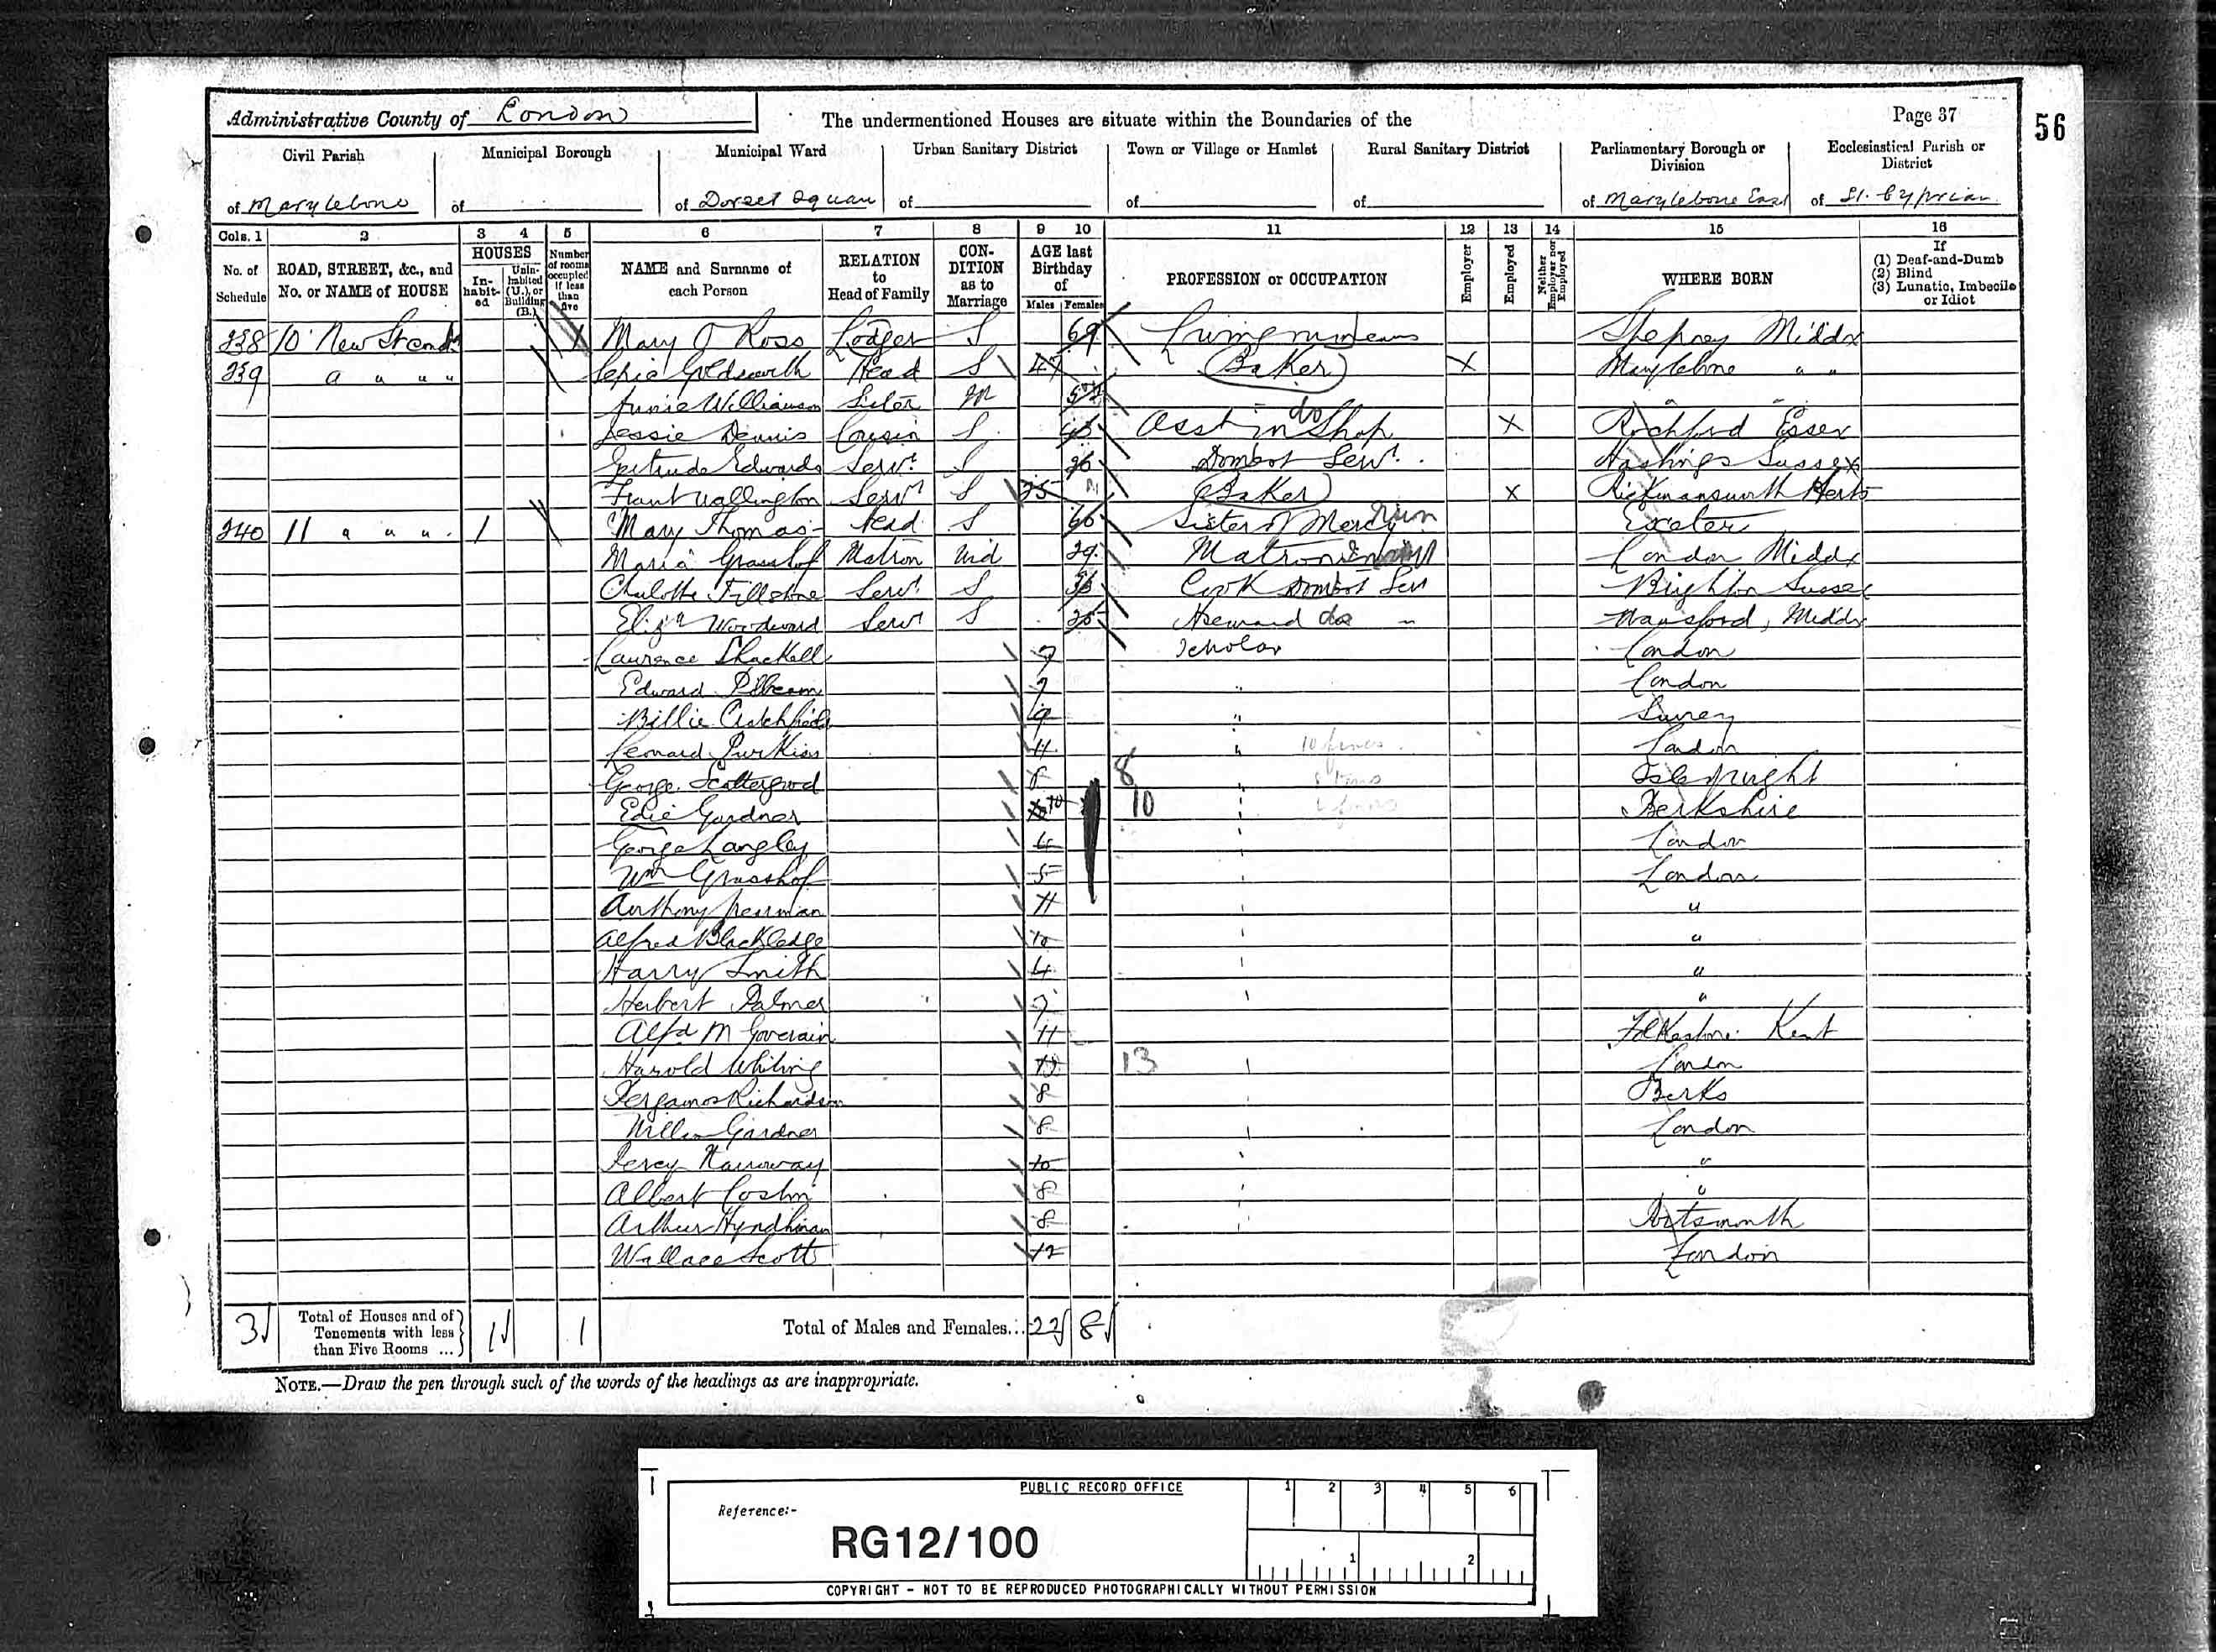 Administrative County of London
The undermentioned Houses are situate within the Boundaries of the
Page 37
56
Civil Parish Municipal Borough Municipal Ward Urban Sanitary District Town or Village or Hamlet Rural Sanitary District Parliamentary Borough or Division Ecclesiastical Parish or District
of Marylebone of of Dorset Square of of of of Marylebone East of St. Cyprian
Cols. 1 2 3 4 5 6 7 8 9 10 11 12 13 14 15 16
No. of Schedule
ROAD, STREET, &c., and No. or NAME of HOUSE
HOUSES
In-habit-ed
Unin-habited (U.), or Building (B.)
Number of rooms occupied if less than five
NAME and Surname of each Person
RELATION to Head of Family
CON-DITION as to Marriage
AGE last Birthday of
Males Females
PROFESSION or OCCUPATION
Employer
Employed
Neither Employer nor Employed
WHERE BORN
If
(1) Deaf-and-Dumb
(2) Blind
(3) Lunatic, Imbecile or Idiot
238 10 New Street Mary O Ross Lodger S 69 Stepney Middx
239 " " " " Goldsworth Head S 47 Baker X Marylebone " "
Annie Williamson Sister M " "
Jessie Dennis Cousin S Asst in do Shop X Rochford Essex
Gertrude Edwards Servt S 26 Domest Servt Hastings Sussex
Frank Wallington Servt S 25 Baker X Rickmansworth Herts
240 11 " " " 1 Mary Thomas Head S 66 Sister of Mercy Nun Exeter
Maria Grasshof Matron Wid 29 Matron London Middx
Charlotte Fillstone Servt S 36 Cook Domest Serv Brighton Sussex
Eliza Woodward Servt S do " Middx
Laurence Shackell 7 Scholar London
Edward Pilbeam 7 " London
Billie 9 " Surrey
Leonard Purkiss 11 " London
George Scattergood 8 8
Edie Gardner 10 10 " Berkshire
George Langley 4 " London
Wm Grasshof 5 " London
Anthony Pearman 11 " "
Alfred Blackledge 10 "
Harry Smith 4 " "
Herbert Palmer 7 " "
Alfd M Goverain 11 Folkestone Kent
Harold Whiting 13 13 " London
Richardson 8 " Berks
Gardner 8 " London
Percy 10 " "
Albert Costin 8 " "
Arthur Hyndhman 8 " Portsmouth
Wallace Scott 12 London
3 Total of Houses and of Tenements with less than Five Rooms ... 1 1 Total of Males and Females... 22 8
NOTE.—Draw the pen through such of the words of the headings as are inappropriate.
PUBLIC RECORD OFFICE
1 2 3 4 5 6
Reference:-
RG12/100
1 2
COPYRIGHT - NOT TO BE REPRODUCED PHOTOGRAPHICALLY WITHOUT PERMISSION